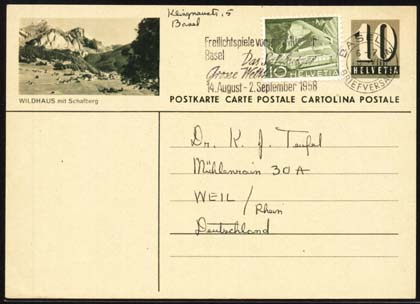 Basel
Freilichtspiele vor
Basel
Das
Grosse Welt
14. August - 2. September 1958
10
HELVETIA
10
HELVETIA
BASEL
BRIEFVERSAND
WILDHAUS mit Schafberg
POSTKARTE CARTE POSTALE CARTOLINA POSTALE
Dr. K. J. Teufel
Mühlenrain 30A
WEIL /
Rhein
Deutschland